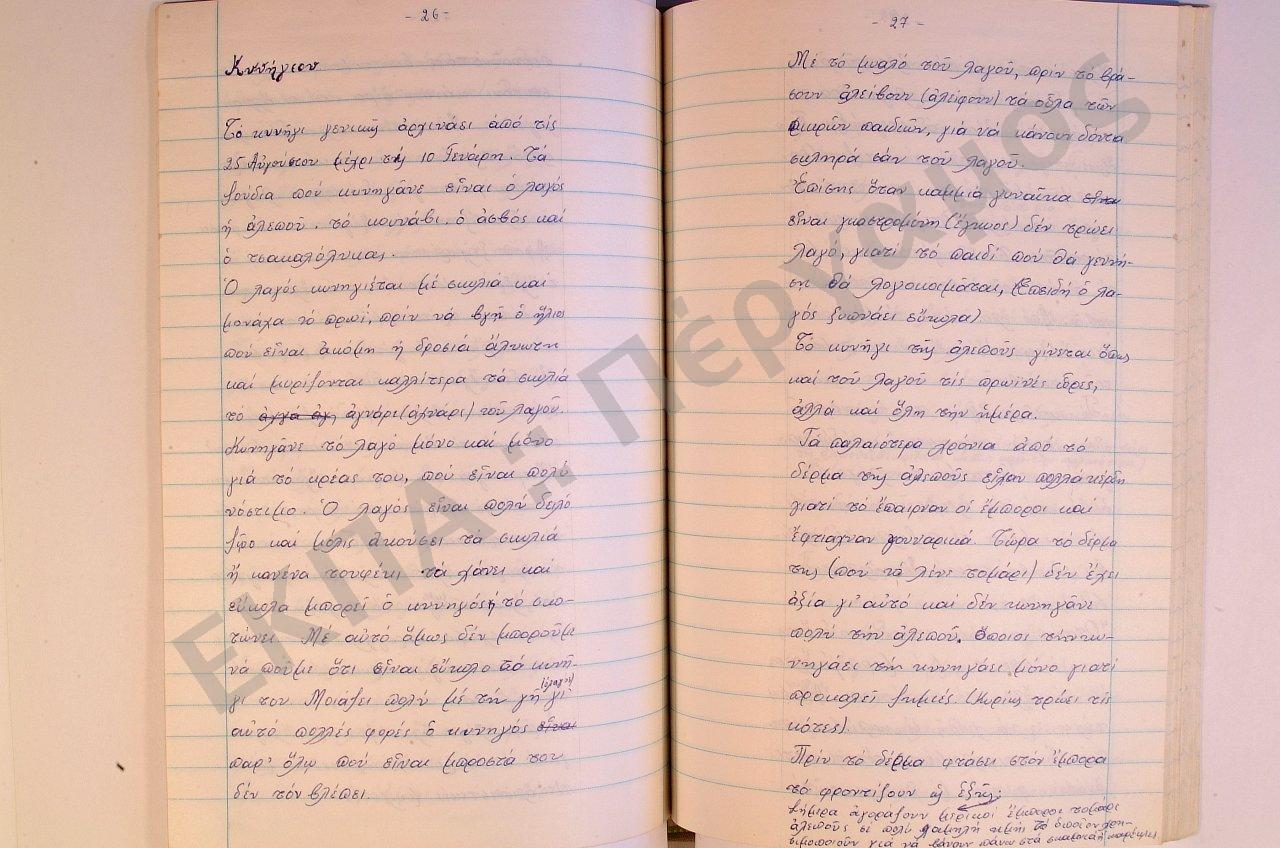 - 26 -
Κυνήγιον
Τό κυννῆγι γενικῶς ἀρχινάει ἀπό τίς
25 Αὐγούστου μέχρι τίς 10 Γενάρη. Τά
ζούδια πού κυνηγᾶνε εἶναι ὁ λαγός
ἡ ἀλεποῦ. τό κουνάβι. ὁ ἀσβός καί
ὁ τσακαλόλυκας.
Ὁ λαγός κυνηγιέται μέ σκυλιά καί
μονάχα τό πρωί, πρίν νά βγῆ ὁ ἥλιος
πού εἶναι ἀκόμη ἡ δροσιά ἄλυωτη
καί μυρίζονται καλλίτερα τά σκυλιά
τό ἀχνάρι (ἀχνάρι) τοῦ λαγοῦ.
Κυνηγᾶνε τό λαγό μόνο καί μόνο
γιά τό κρέας του, πού εἶναι πολύ
νόστιμο. Ὁ λαγός εἶναι πολύ δειλό
ζῶο καί μόλις ἀκούσει τά σκυλιά
ἤ κανένα τουφέκι τά χάνει καί
εὔκολα μπορεῖ ὁ κυννηγός τό σκο-
τώνει. Μέ αὐτό ὅμως δέν μποροῦμε
νά ποῦμε ὅτι εἶναι εὔκολο τό κυνῆ-
γι του Μοιάζει πολύ μέ τήν γῆ γι'
αὐτό πολλές φορές ὁ κυννηγός εἶναι
παρ' ὅλῳ πού εἶναι μπροστά του
δέν τόν βλέπει.
- 27 -
Μέ τό μυαλό τοῦ λαγοῦ, πρίν τό βρά-
σουν ἀλείβουν (ἀλείφουν) τά οὖλα τῶν
μικρῶν παιδιῶν, γιά νά κάνουν δόντια
σκληρά σάν τοῦ λαγοῦ.
Ἐπίσης ὅταν καμμιά γυναῖκα εἶναι
εἶναι γκαστρομένη (ἔγκυος) δέν τρώει
λαγό, γιατί τό παιδί πού θά γεννή-
ση θά λαγοκοιμᾶται, (Ἐπειδή ὁ λα-
γός ξυπνάει εὔκολα).
Τό κυνῆγι τῆς ἀλεποῦς γίνεται ὅπως
καί τοῦ λαγοῦ τίς πρωϊνές ὧρες,
ἀλλά καί ὅλη τήν ἡμέρα.
Τά παλαιότερα χρόνια ἀπό τό
δέρμα τῆς ἀλεποῦς εἶχαν πολλά κέρδη
γιατί τό ἔπαιρναν οἱ ἔμποροι καί
ἔφτιαχναν γουναρικά. Τώρα τό δέρμα
της (πού τό λένε τομάρι) δέν ἔχει
ἀξία γι' αὐτό καί δέν κυνηγᾶνε
πολύ τήν ἀλεποῦ. Ὅποιος τήν κυ-
νηγάει τήν κυννηγάει μόνο γιατί
προκαλεῖ ζημιές. (Κυρίως τρώει τίς
κότες).
Πρίν τό δέρμα φτάσει στόν ἔμπορα
τό φροντίζουν ὡς ἑξῆς:
Σήμερα ἀγοράζουν μερικοί ἔμποροι τομάρι
ἀλεποῦς σέ πολύ χαμηλή τιμή τό ὁποῖον χρη-
σιμοποιοῦν γιά νά βάνουν πάνω στά
ΕΚΠΑ :: Πέργαμος